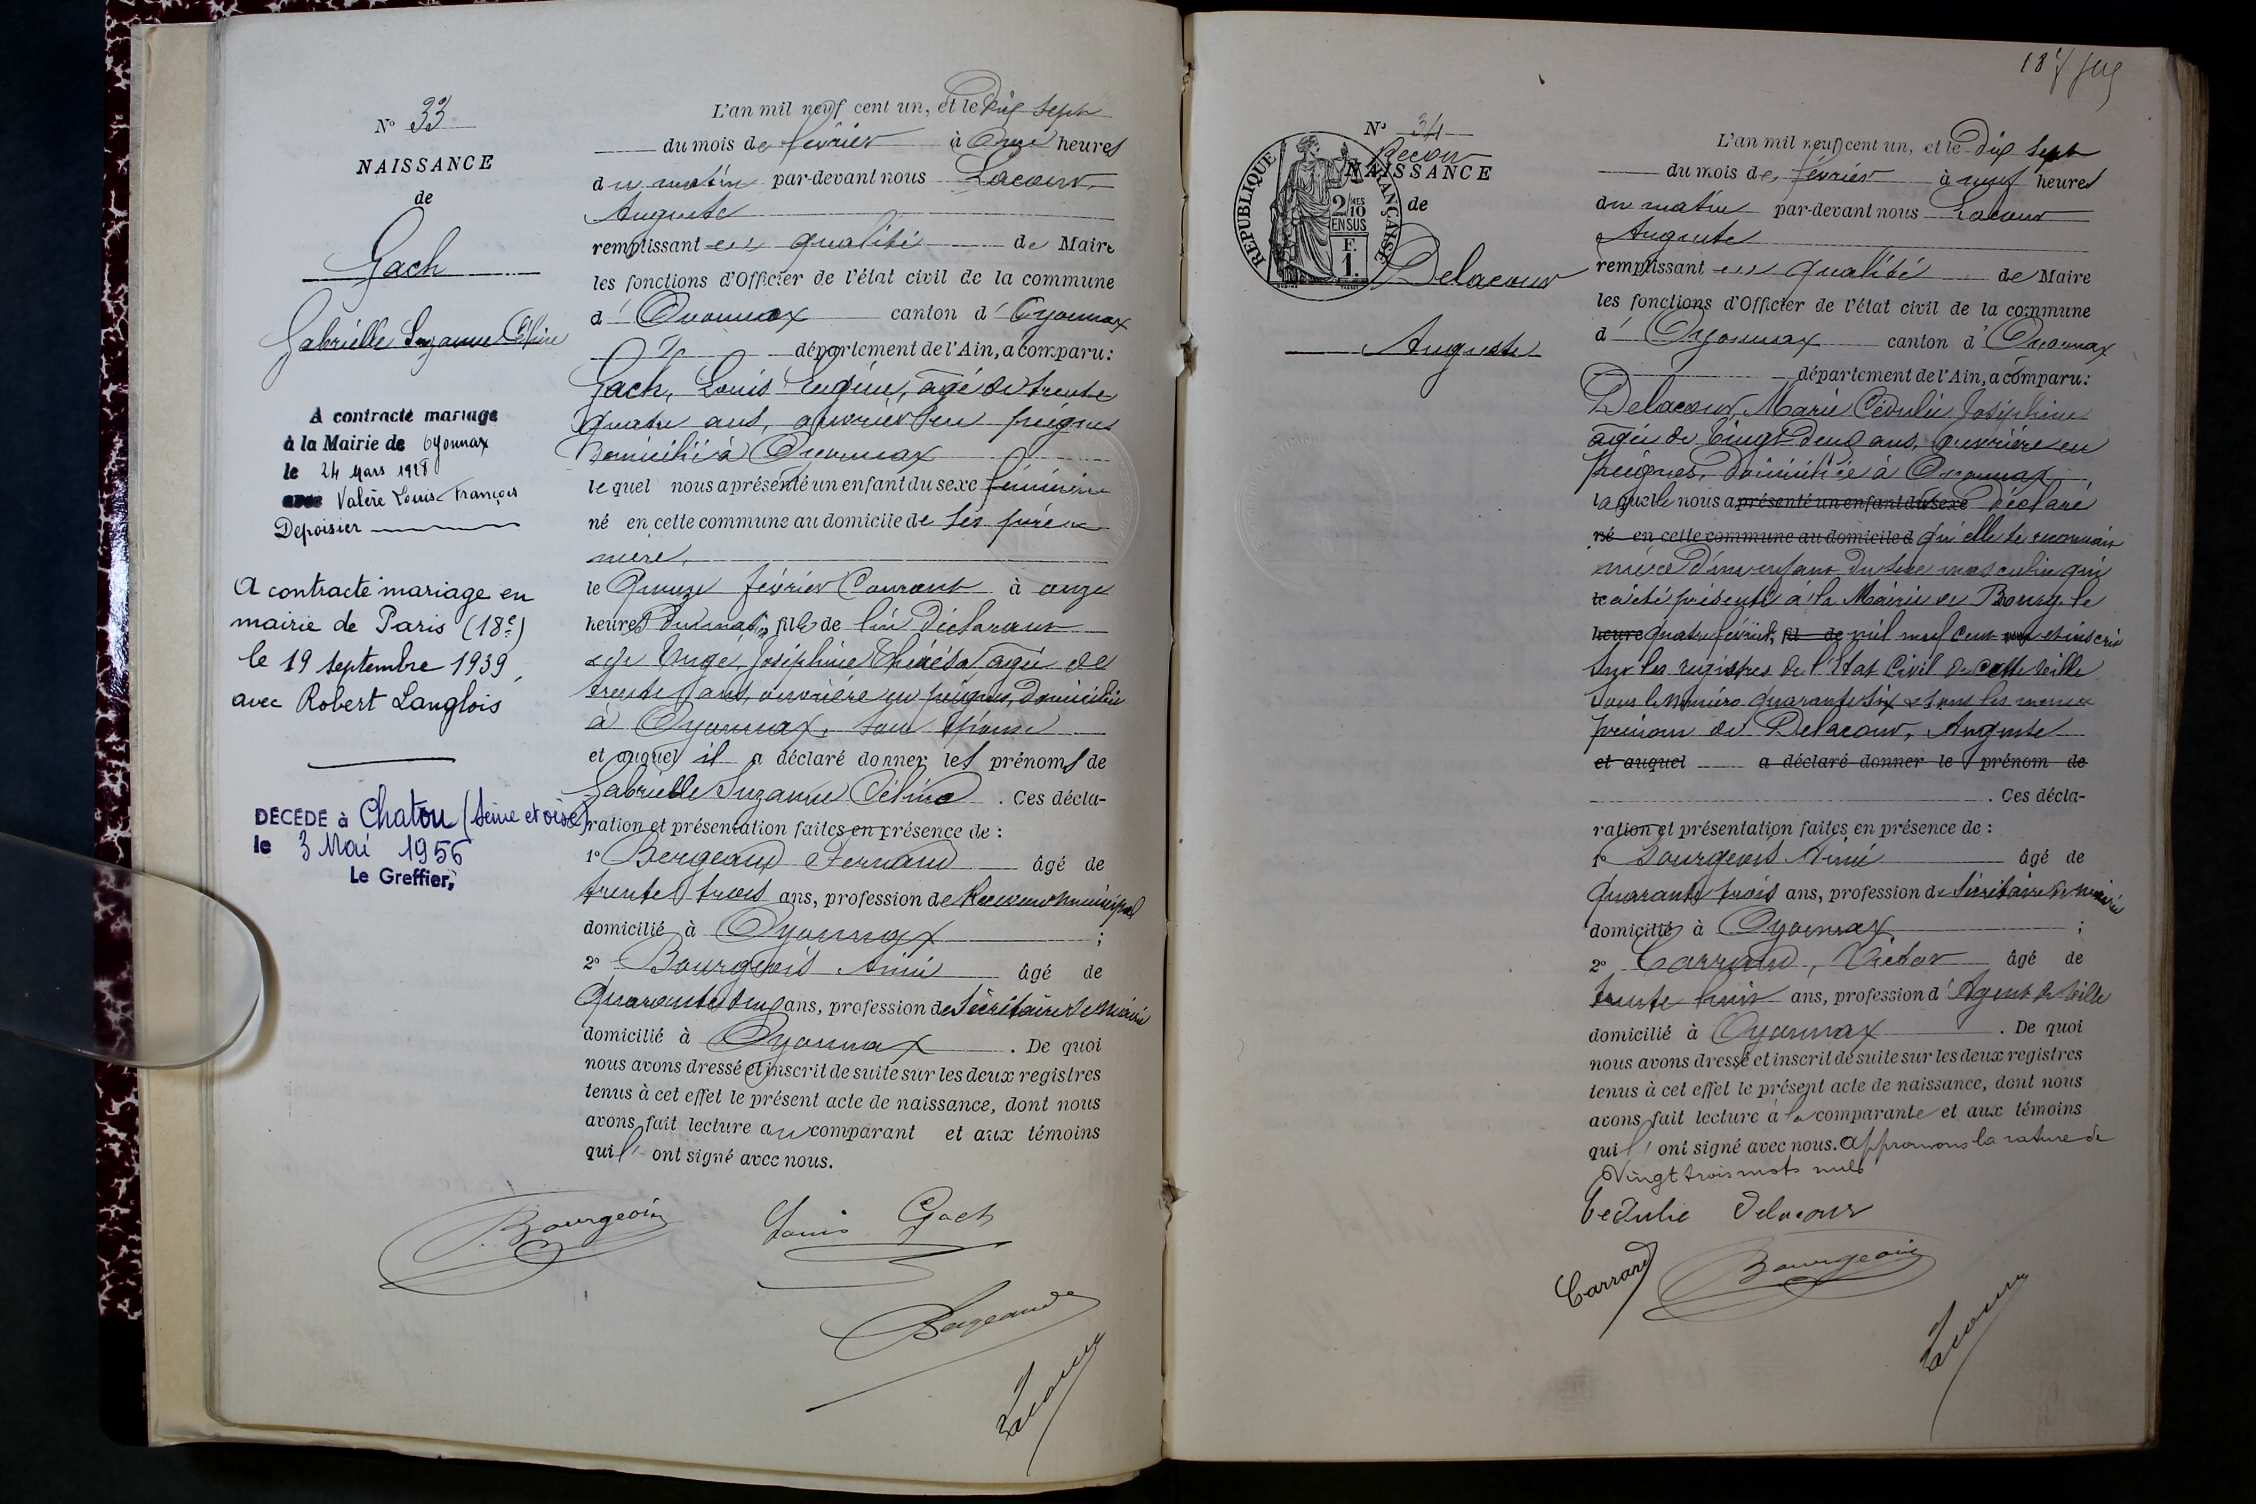 N° 33
NAISSANCE
de
Gach
Gabrielle Suzanne Céline
A contracté mariage
à la Mairie de Oyonnax
le 24 Mars 1928
avec Valère Louis François
Depoisier
A contracté mariage en
mairie de Paris (18e)
le 19 septembre 1939,
avec Robert Langlois
DECEDE à Chatou (Seine et oise)
le 3 Mai 1956
Le Greffier,
L'an mil neuf cent un, et le dix sept
du mois de février à onze heures
du matin par-devant nous Lacour
Auguste
remplissant en qualité de Maire
les fonctions d'Officier de l'état civil de la commune
d' Oyonnax canton d' Oyonnax
département de l'Ain, a comparu:
Gach, Louis Eugène, âgé de trente
quatre ans, ouvrier en peignes
domicilié à Oyonnax
lequel nous a présenté un enfant du sexe féminin
né en cette commune au domicile de ses père &
mère,
le quinze février courant à onze
heures du matin, fille de lui déclarant
& de Tragé, Joséphine Thérésa âgée de
trente ans, ouvrière en peignes, domiciliée
à Oyonnax, son épouse
et auquel il a déclaré donner les prénoms de
Gabrielle Suzanne Céline. Ces décla-
ration et présentation faites en présence de :
1° Bergeaud Fernand âgé de
trente trois ans, profession de Receveur municipal
domicilié à Oyonnax ;
2° Bourgeois Aimé âgé de
quarante deux ans, profession de Secrétaire de Mairie
domicilié à Oyonnax. De quoi
nous avons dressé et inscrit de suite sur les deux registres
tenus à cet effet le présent acte de naissance, dont nous
avons fait lecture au comparant et aux témoins
qui l' ont signé avec nous.
Bourgeois Louis Gach
Bergeaud
Lacour
187
N° 34
Recon
NAISSANCE
de
REPUBLIQUE FRANÇAISE
2/10 MES
EN SUS
F.
1.
Delacour
Auguste
L'an mil neuf cent un, et le dix sept
du mois de février à neuf heures
du matin par-devant nous Lacour
Auguste
remplissant en qualité de Maire
les fonctions d'Officier de l'état civil de la commune
d' Oyonnax canton d' Oyonnax
département de l'Ain, a comparu:
Delacour, Marie Cédulie Joséphine
âgée de vingt-deux ans, ouvrière en
peignes, domiciliée à Oyonnax
laquelle nous a présenté un enfant du sexe déclaré
né en cette commune au domicile d qu'elle se reconnaît
mère d'un enfant du sexe masculin qui
le a été présenté à la Mairie de Bourg le
heure quatre février, fil de mil neuf cent un et inscrit
sur les registres de l'Etat Civil de cette ville
sous le numéro quarante six & sous les nom &
prénom de Delacour, Auguste
et auquel a déclaré donner le prénom de
. Ces décla-
ration et présentation faites en présence de :
1° Bourgeois Aimé âgé de
quarante trois ans, profession de Secrétaire de mairie
domicilié à Oyonnax ;
2° Carrand, Victor âgé de
trente huit ans, profession d' Agent de Ville
domicilié à Oyonnax. De quoi
nous avons dressé et inscrit de suite sur les deux registres
tenus à cet effet le présent acte de naissance, dont nous
avons fait lecture à la comparante et aux témoins
qui l' ont signé avec nous. Approuvons la rature de
Vingt trois mots nuls
Cedulie Delacour
Carrand Bourgeois
Lacour